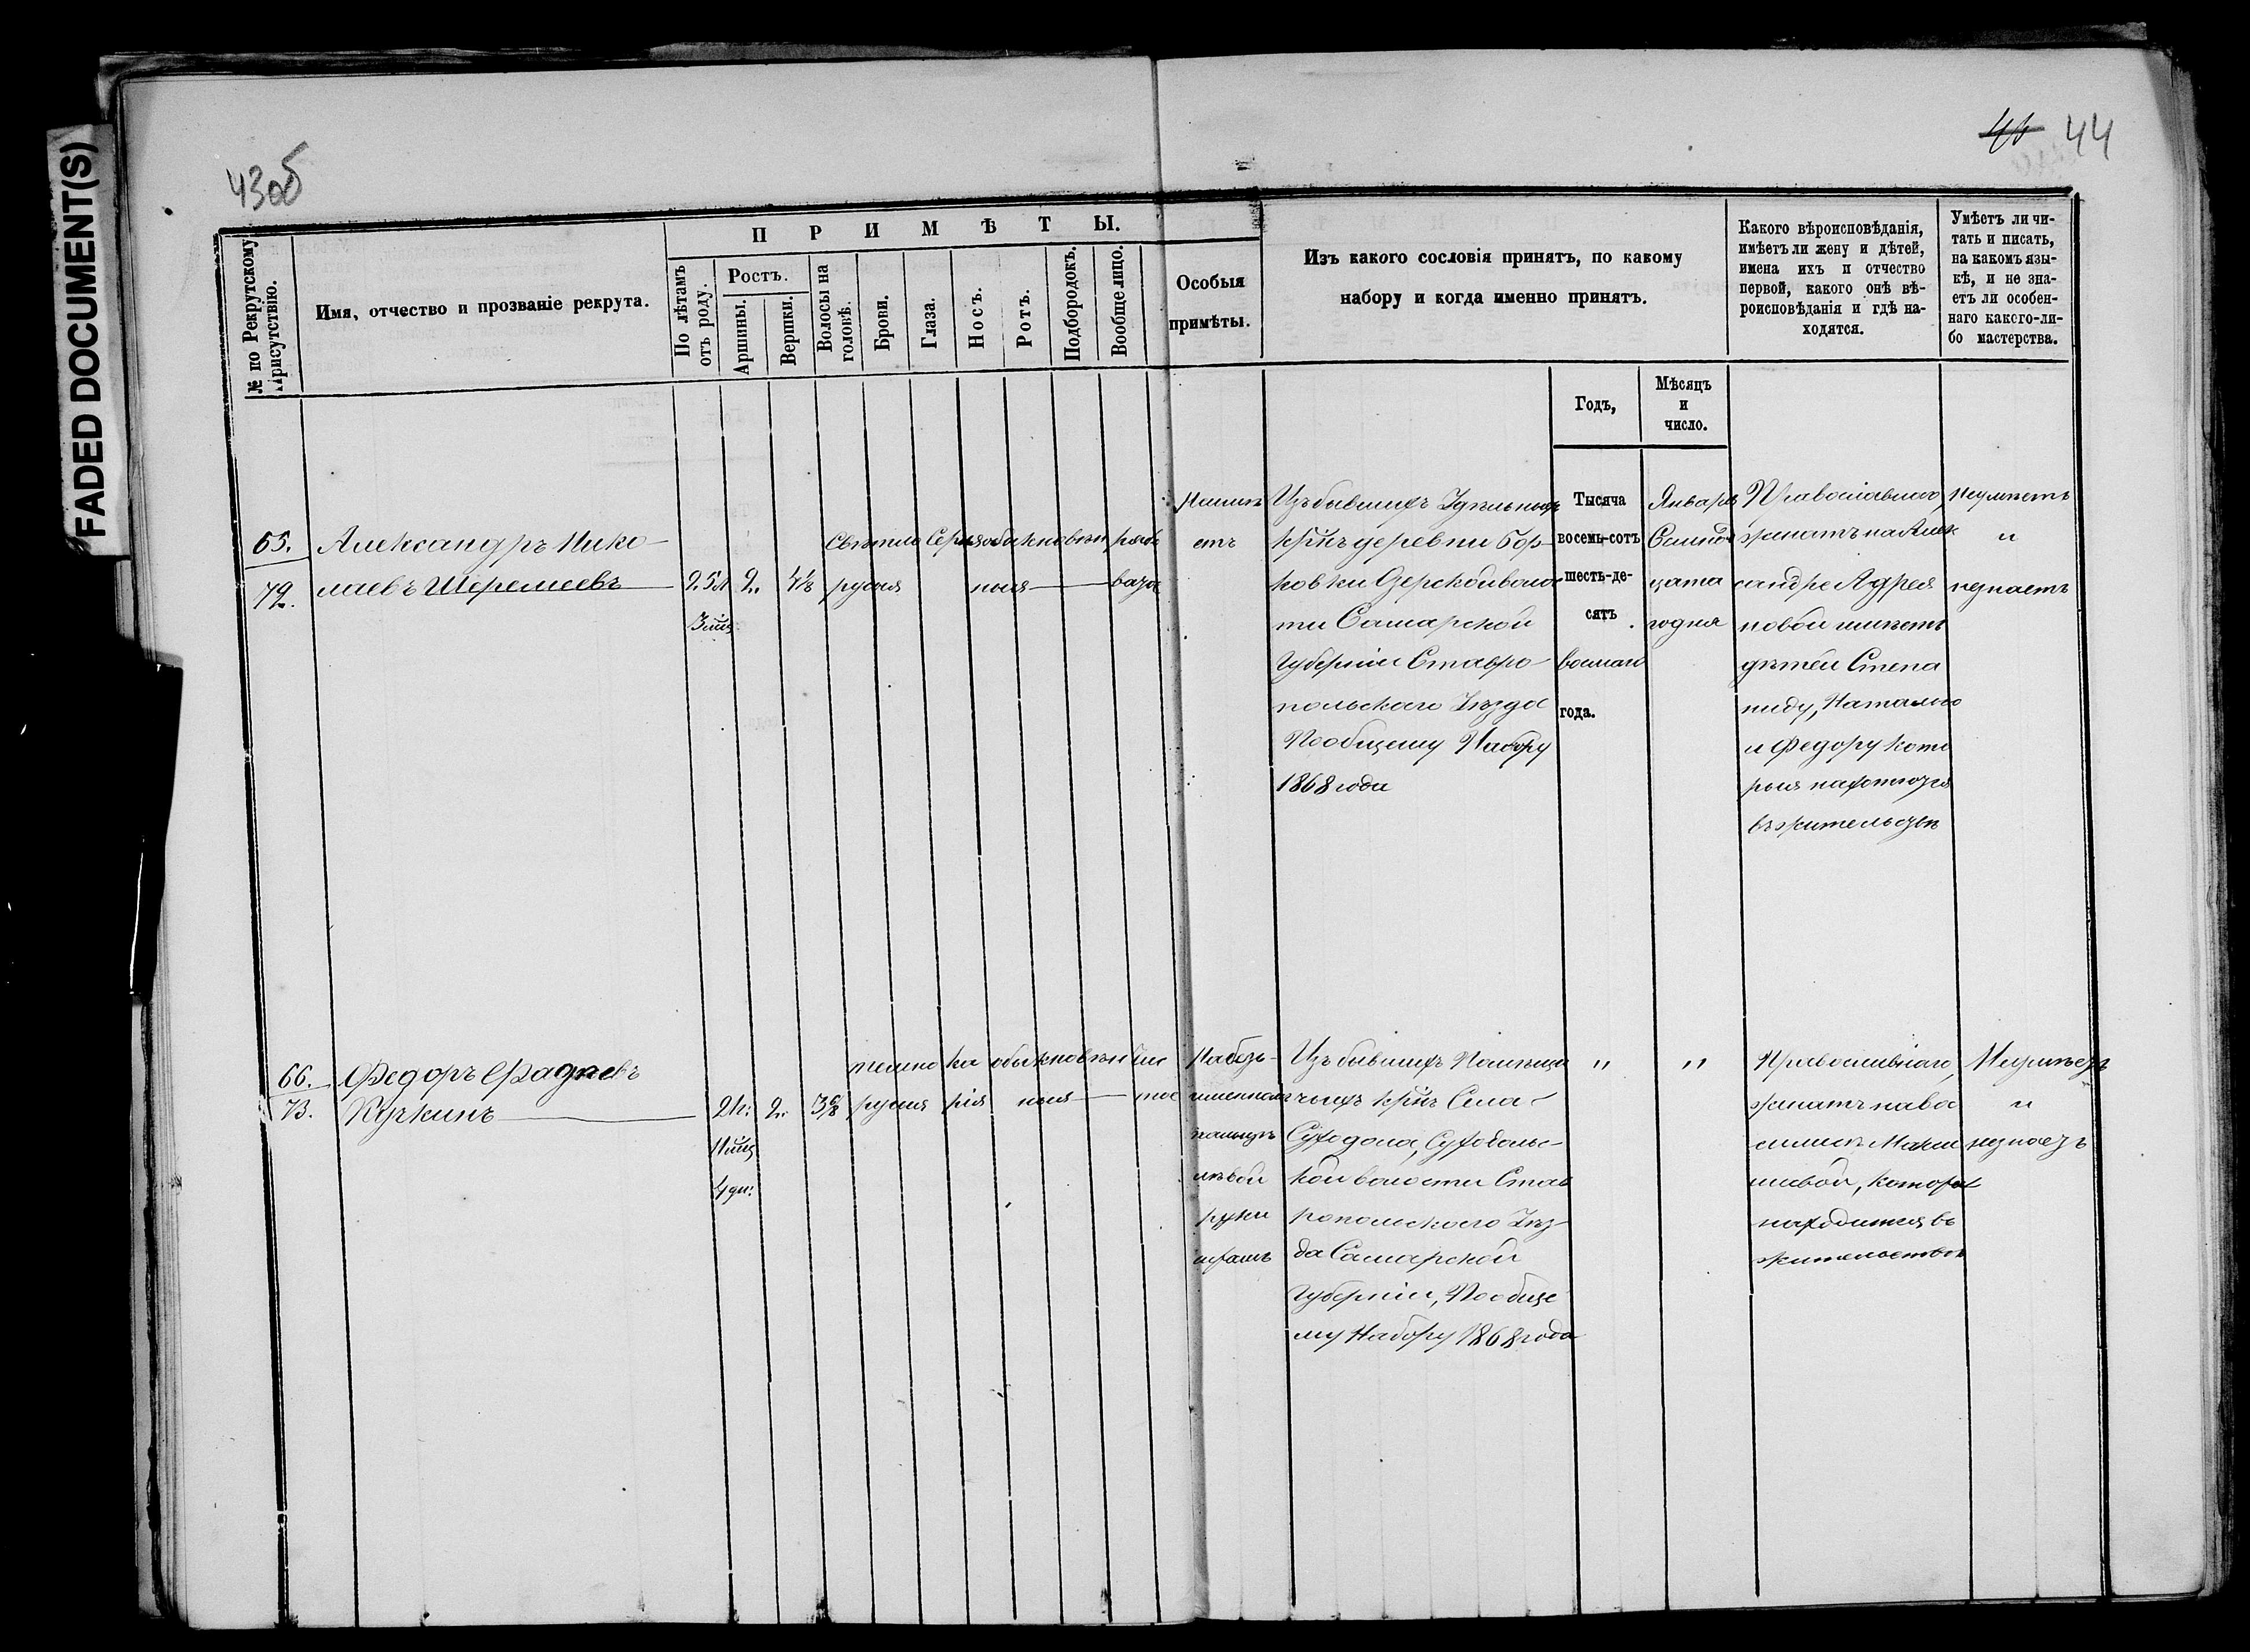 FADED DOCUMENT(S)
43об
44
№ по Рекрутскому Присутствію.
Имя, отчество и прозваніе рекрута.
ПРИМѢТЫ.
По лѣтамъ отъ роду.
Ростъ.
Аршины.
Вершки.
Волосы на головѣ.
Брови.
Глаза.
Носъ.
Ротъ.
Подбородокъ.
Вообще лицо.
Особыя
примѣты.
Изъ какого сословія принятъ, по какому
набору и когда именно принятъ.
Годъ,
Мѣсяцъ
и
число.
Какого вѣроисповѣданія,
имѣетъ ли жену и дѣтей,
имена ихъ и отчество
первой, какого онѣ вѣ-
роисповѣданія и гдѣ на-
ходятся.
Умѣетъ ли чи-
тать и писать,
на какомъ язы-
кѣ, и не зна-
етъ ли особен-
наго какого-ли-
бо мастерства.
65.
72.
Александръ Нико-
лаевъ Шеремеевъ
25 л
3 мѣц
2.
4 1/8
свѣтло
русыя
Серыя
обыкновен
ныя
рябо
вато
Неимѣ
етъ
Изъ бывшихъ Удѣльныхъ
кр̃нъ деревни Бор-
ковки волос
ти Самарской
Губерніи Ставро-
польскаго Уѣзда
По общему Набору
1868 года
Тысяча
восемь-сотъ
шесть-де-
сятъ
восмаго
года.
Января
Семнад
цата
го дня
Православнаго,
женатъ на Алек
сандре Адрея
новой имѣетъ
дѣтей Степа
ниду, Наталью
и Федору кото
рыя находются
въ жительствѣ
Неумѣетъ
и
незнаетъ
66.
73.
Федоръ Фадѣевъ
Кучкинъ
21 г.
11 мѣц
4 дн.
2.
3 6/8
темно
русыя
ка
рія
обыкновен
ныя
чис
тое
На безъ-
именномъ
пальцѣ
лѣвой
руки
шрамъ
Изъ бывшихъ Помѣщи
чьихъ кр̃нъ Села
Суходола, Суходоль-
кой волости Став
ропольского Уѣз-
да Самарской
Губерніи, По обще
му Набору 1868 года
"
"
Православнаго,
женатъ на Ва
силисѣ Макси
мовой, котора
находится въ
жительствѣ
Неумѣетъ
и
незнаетъ